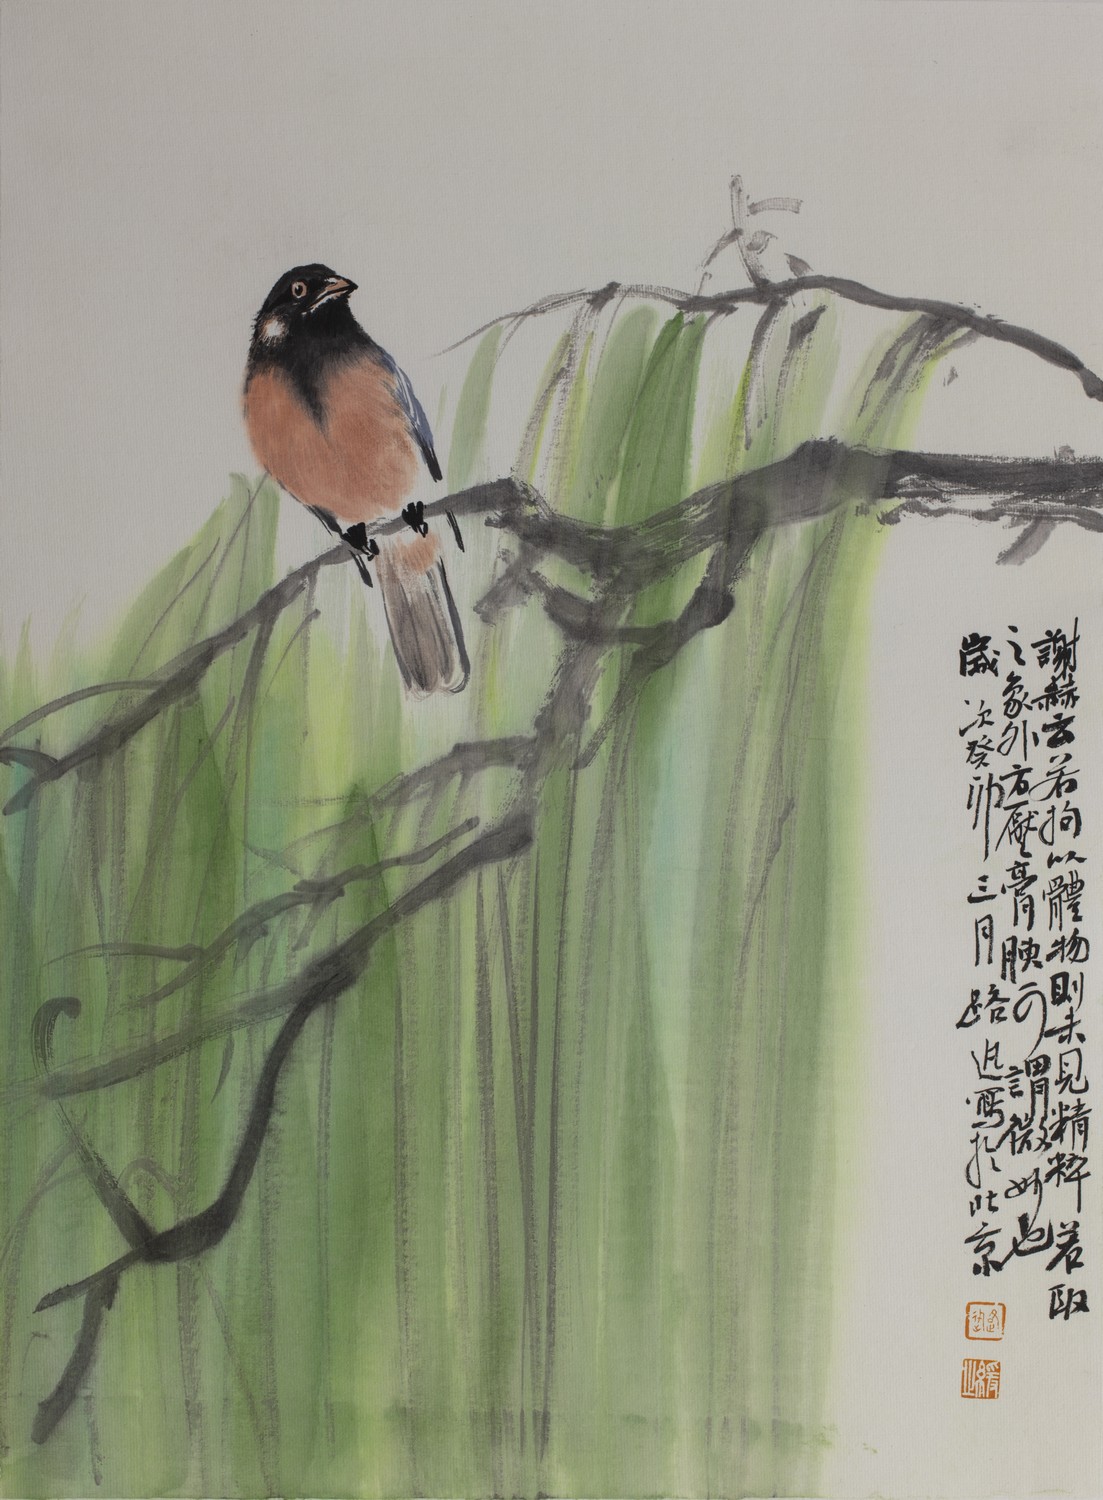 謝赫云若拘以體物則未見精粹若取
之象外方厭膏腴可謂微妙也
歲次癸卯三月路
寫於北京
緩